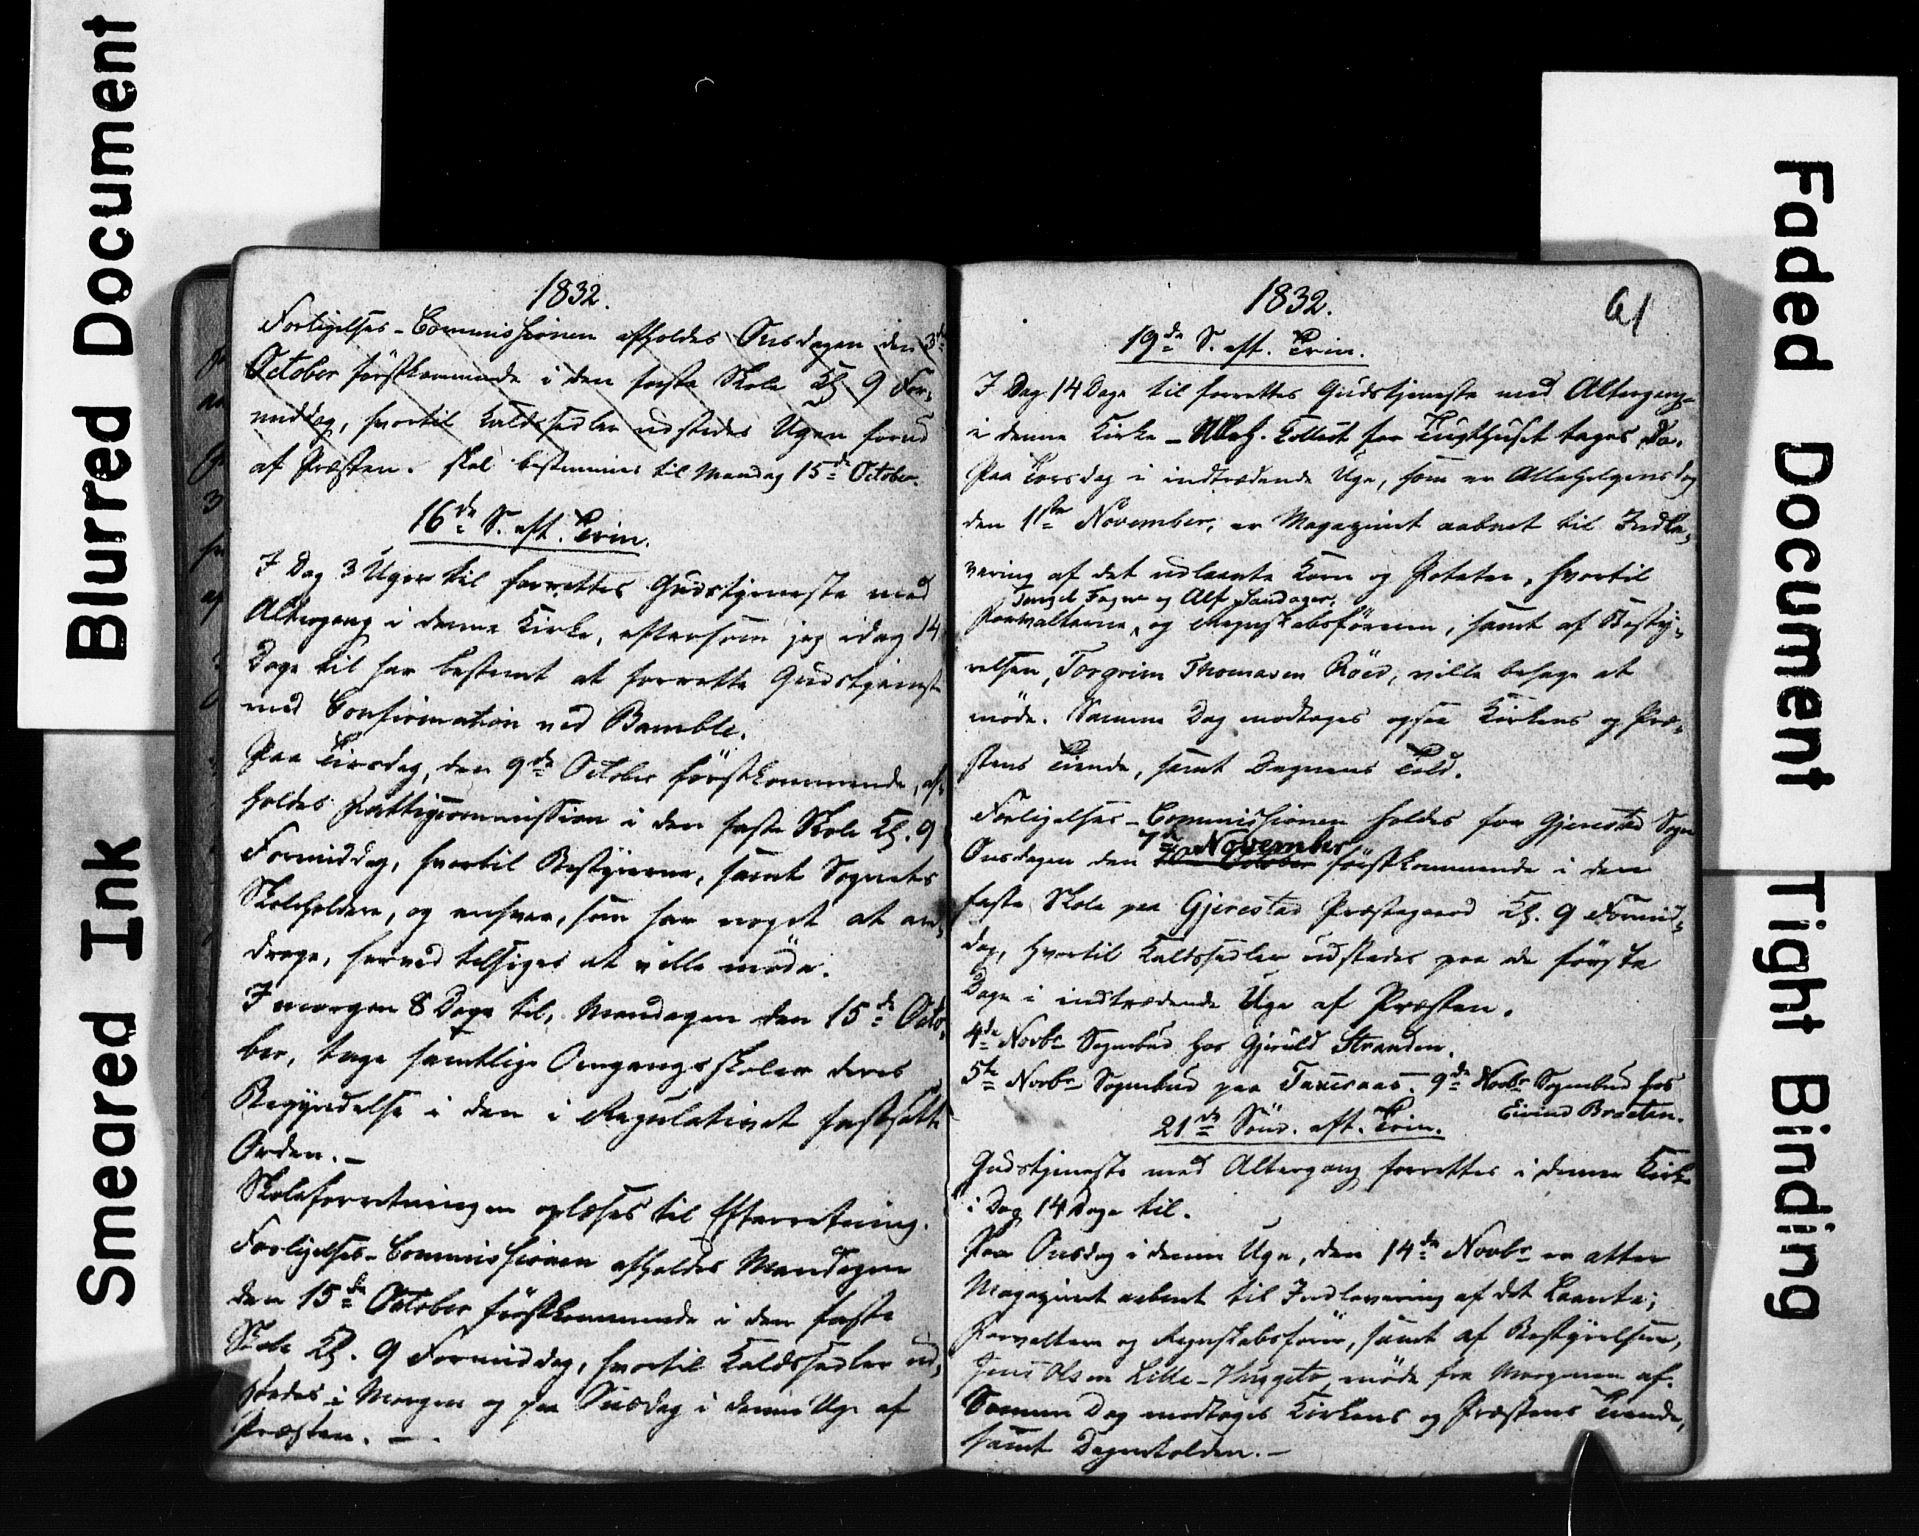 Blurred Document
Smeared Ink
Faded Document
Tight Binding
1832.
Forligelses-Commissionen afholdes Onsdagen den 3de
October førstkommende i den faste Skole Kl. 9 For-
middag, hvortil Kaldssedler udstedes Ugen forud
af Præsten. skal bestemmes til Mandag 15de October.
16de S. eft. Trin.
I Dag 3 Uger til forrettes Gudstjeneste med
Altergang i denne Kirke, eftersom jeg idag 14
Dage til har bestemt at forrette Gudstjeneste
med Confirmation ved Bamble.
Paa Tirsdag, den 9de October førstkommende, af-
holdes Fattigcommission i den faste Skole Kl. 9
Formiddag, hvortil Bestyrerne, samt Sognets
Skoleholdere, og enhver, som har noget at an-
drage, herved tilsiges at ville møde.
I morgen 8 Dage til, Mandagen den 15de Octo-
ber, tage samtlige Omgangsskoler deres
Begyndelse i den i Regulativet fastsatte
Orden. –
Skoleforretningen oplæses til Efterretning.
Forligelses-Commissionen afholdes Mandagen
den 15de October førstkommende i den faste
Skole Kl. 9 Formiddag, hvortil Kaldssedler ud-
stedes i Morgen og paa Tirsdag i denne Uge af
Præsten. –
1832.
61
19de S. eft. Trin.
I Dag 14 Dage til forrettes Gudstjeneste med Altergang
i denne Kirke – Collect for Tugthuset tages Do.
Paa Torsdag i indtrædende Uge, som er Allehelgensdag
den 1ste November, er Magazinet aabnet til Indle-
vering af det udlaante Korn og Poteter, hvortil
Tarjel Fogne og Alf Sandager,
Forvalterne, og Regnskabsføreren, samt af Besty-
relsen, Torgrim Thomasen Röed, ville behage at
møde. Samme Dag modtages ogsaa Kirkens og Præ-
stens Tiende, samt Degnens Told.
Forligelses-Commissionen holdes for Gjerestad Sogn
7de November
Onsdagen den October førstkommende i den
faste Skole paa Gjerestad Præstegaard Kl. 9 Formid-
dag, hvortil Kaldssedler udstedes paa de første
Dage i indtrædende Uge af Præsten.
4de Novbr Sognebud hos Gjeruld Stranden.
5te Novbr Sognebud paa 9de Novbr Sognebud hos
Eivind Braaten.
21de Sönd. eft. Trin.
Gudstjeneste med Altergang forrettes i denne Kirke
i Dag 14 Dage til.
Paa Onsdag i denne Uge, den 14de Novbr er atter
Magazinet aabent til Indlevering af det Laante;
Forvaltere og Regnskabsfører, samt af Bestyrelsen,
Jens Olsen Lille-Huggeto, møde fra Morgenen af.
Samme Dag modtages Kirkens og Præstens Tiende,
samt Degnetolden. –